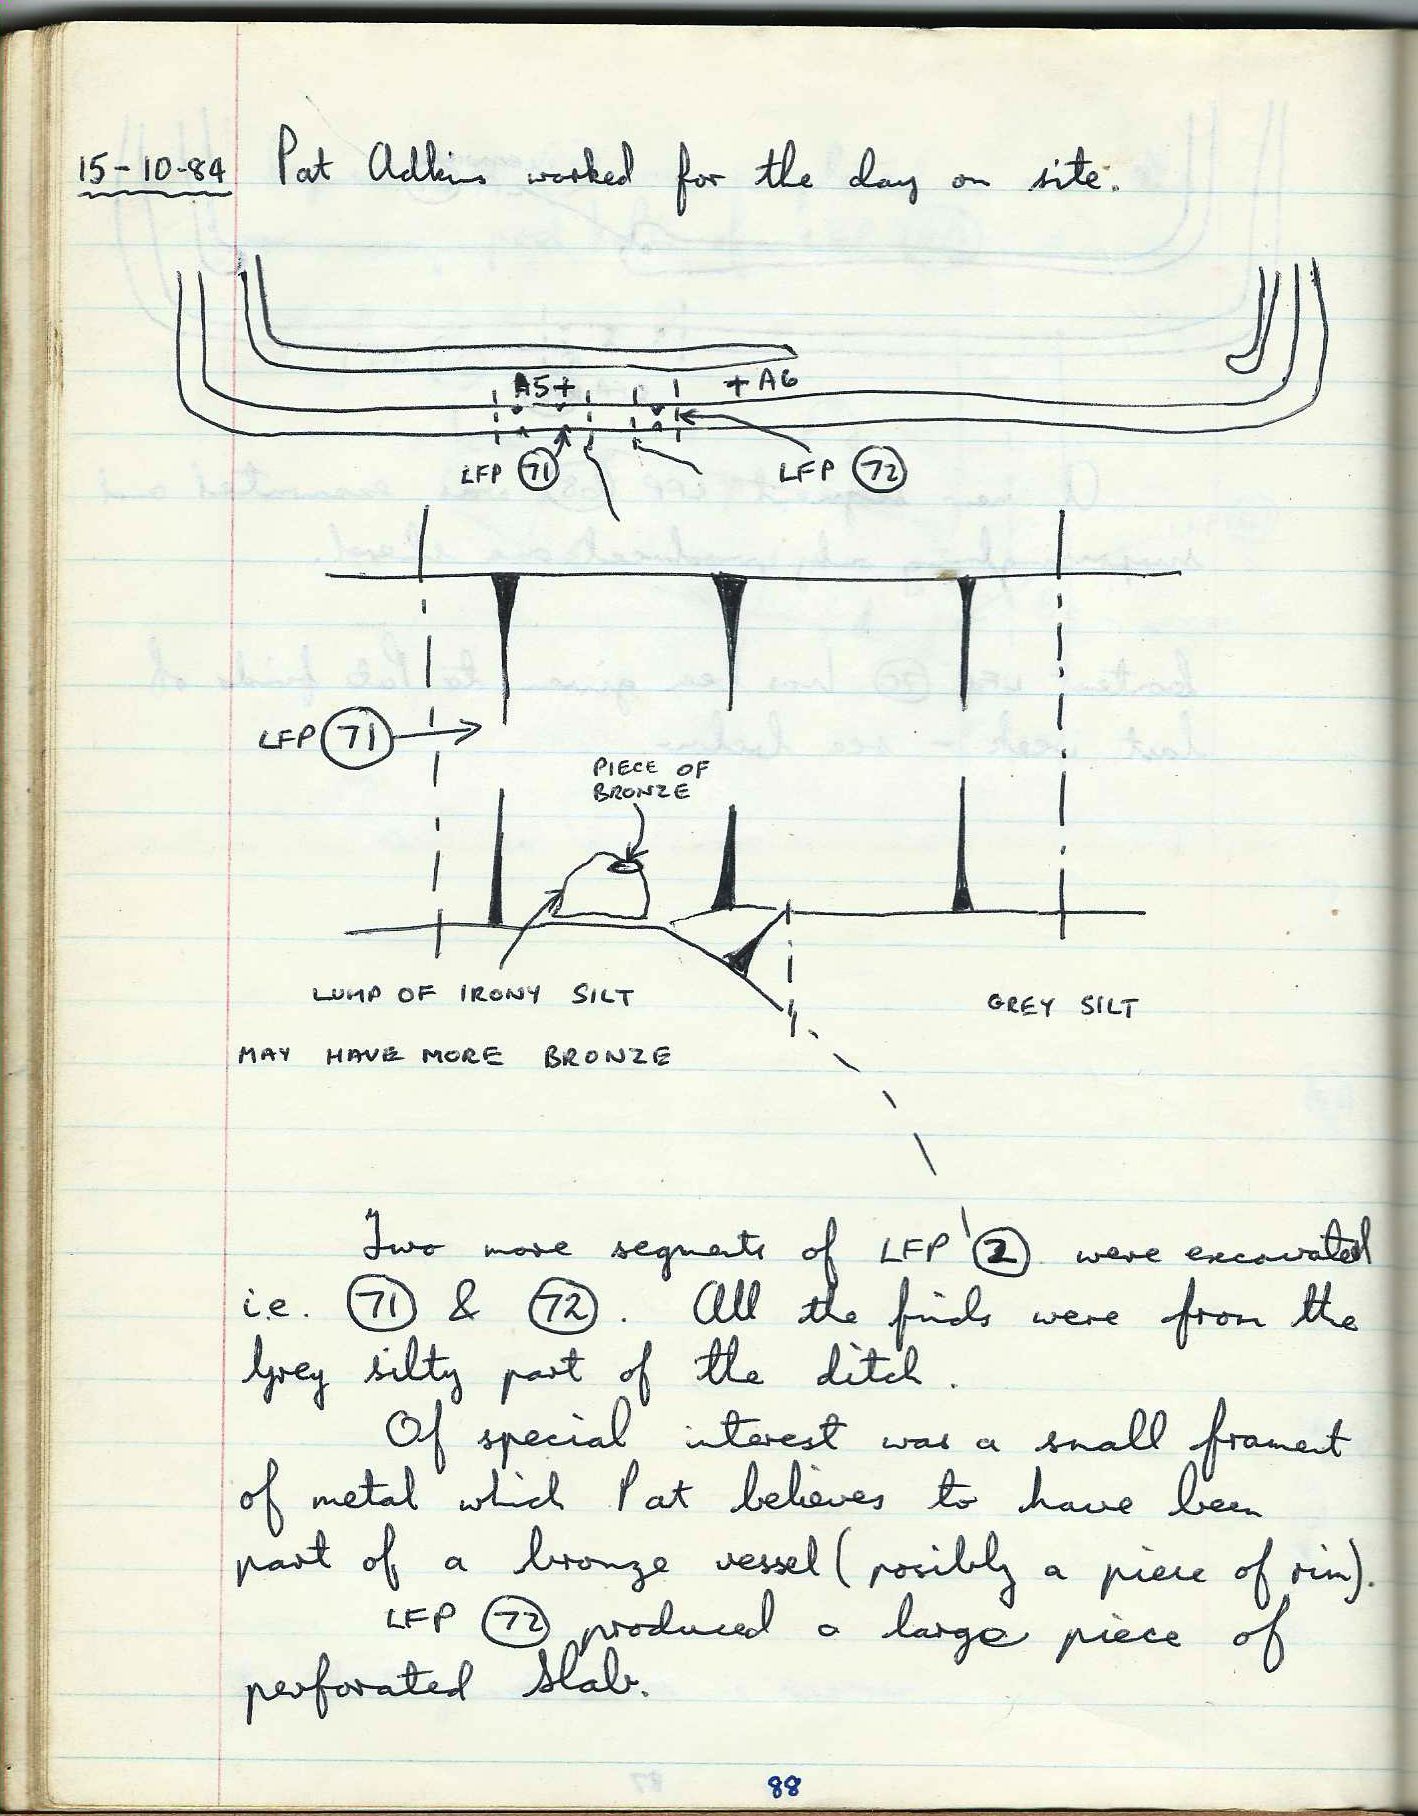 15-10-84 Pat Adkins worked for the day on site.
A5+ +A6
LFP 71 LFP 72
LFP 71
PIECE OF
BRONZE
LUMP OF IRONY SILT GREY SILT
MAY HAVE MORE BRONZE
Two more segments of LFP 2 were excavated
i.e. 71 & 72. All the finds were from the
Grey silty part of the ditch.
Of special interest was a small frament
of metal which Pat believes to have been
part of a bronze vessel (posibly a piece of rim).
LFP 72 produced a large piece of
perforated slab.
88